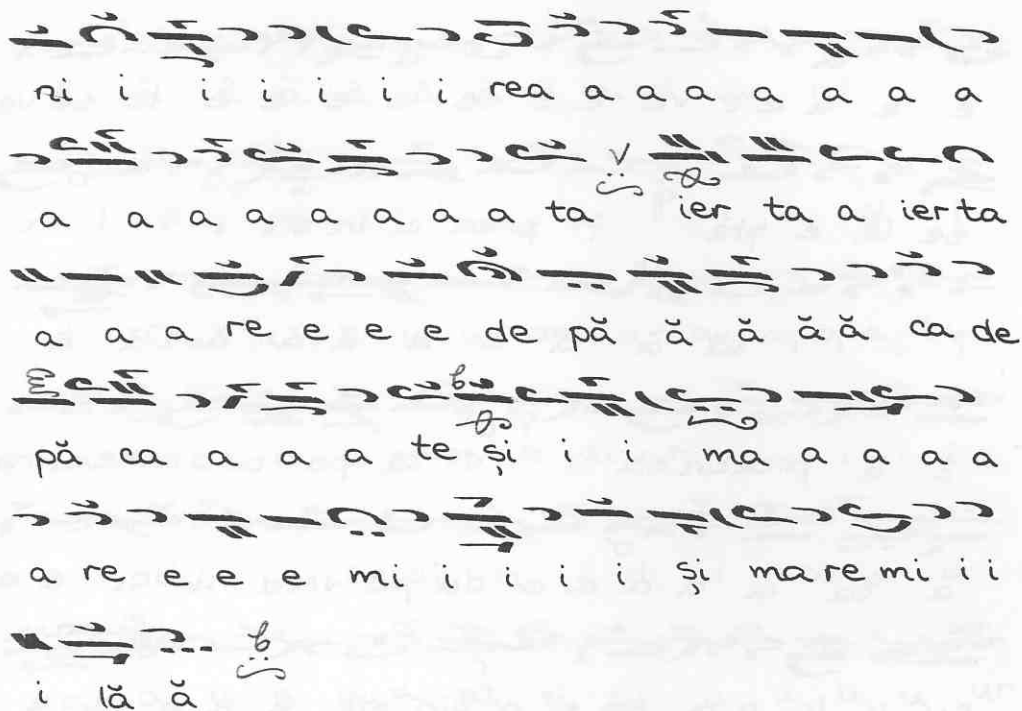 ri i i i i i i rea a a a a a a a
a a a a a a a a ta ier ta a ier ta
a a a re e e e de pă ă ă ă ă ca de
pă ca a a a te și i i ma a a a a
a re e e e mi i i i i și ma re mi i i
i lă ă